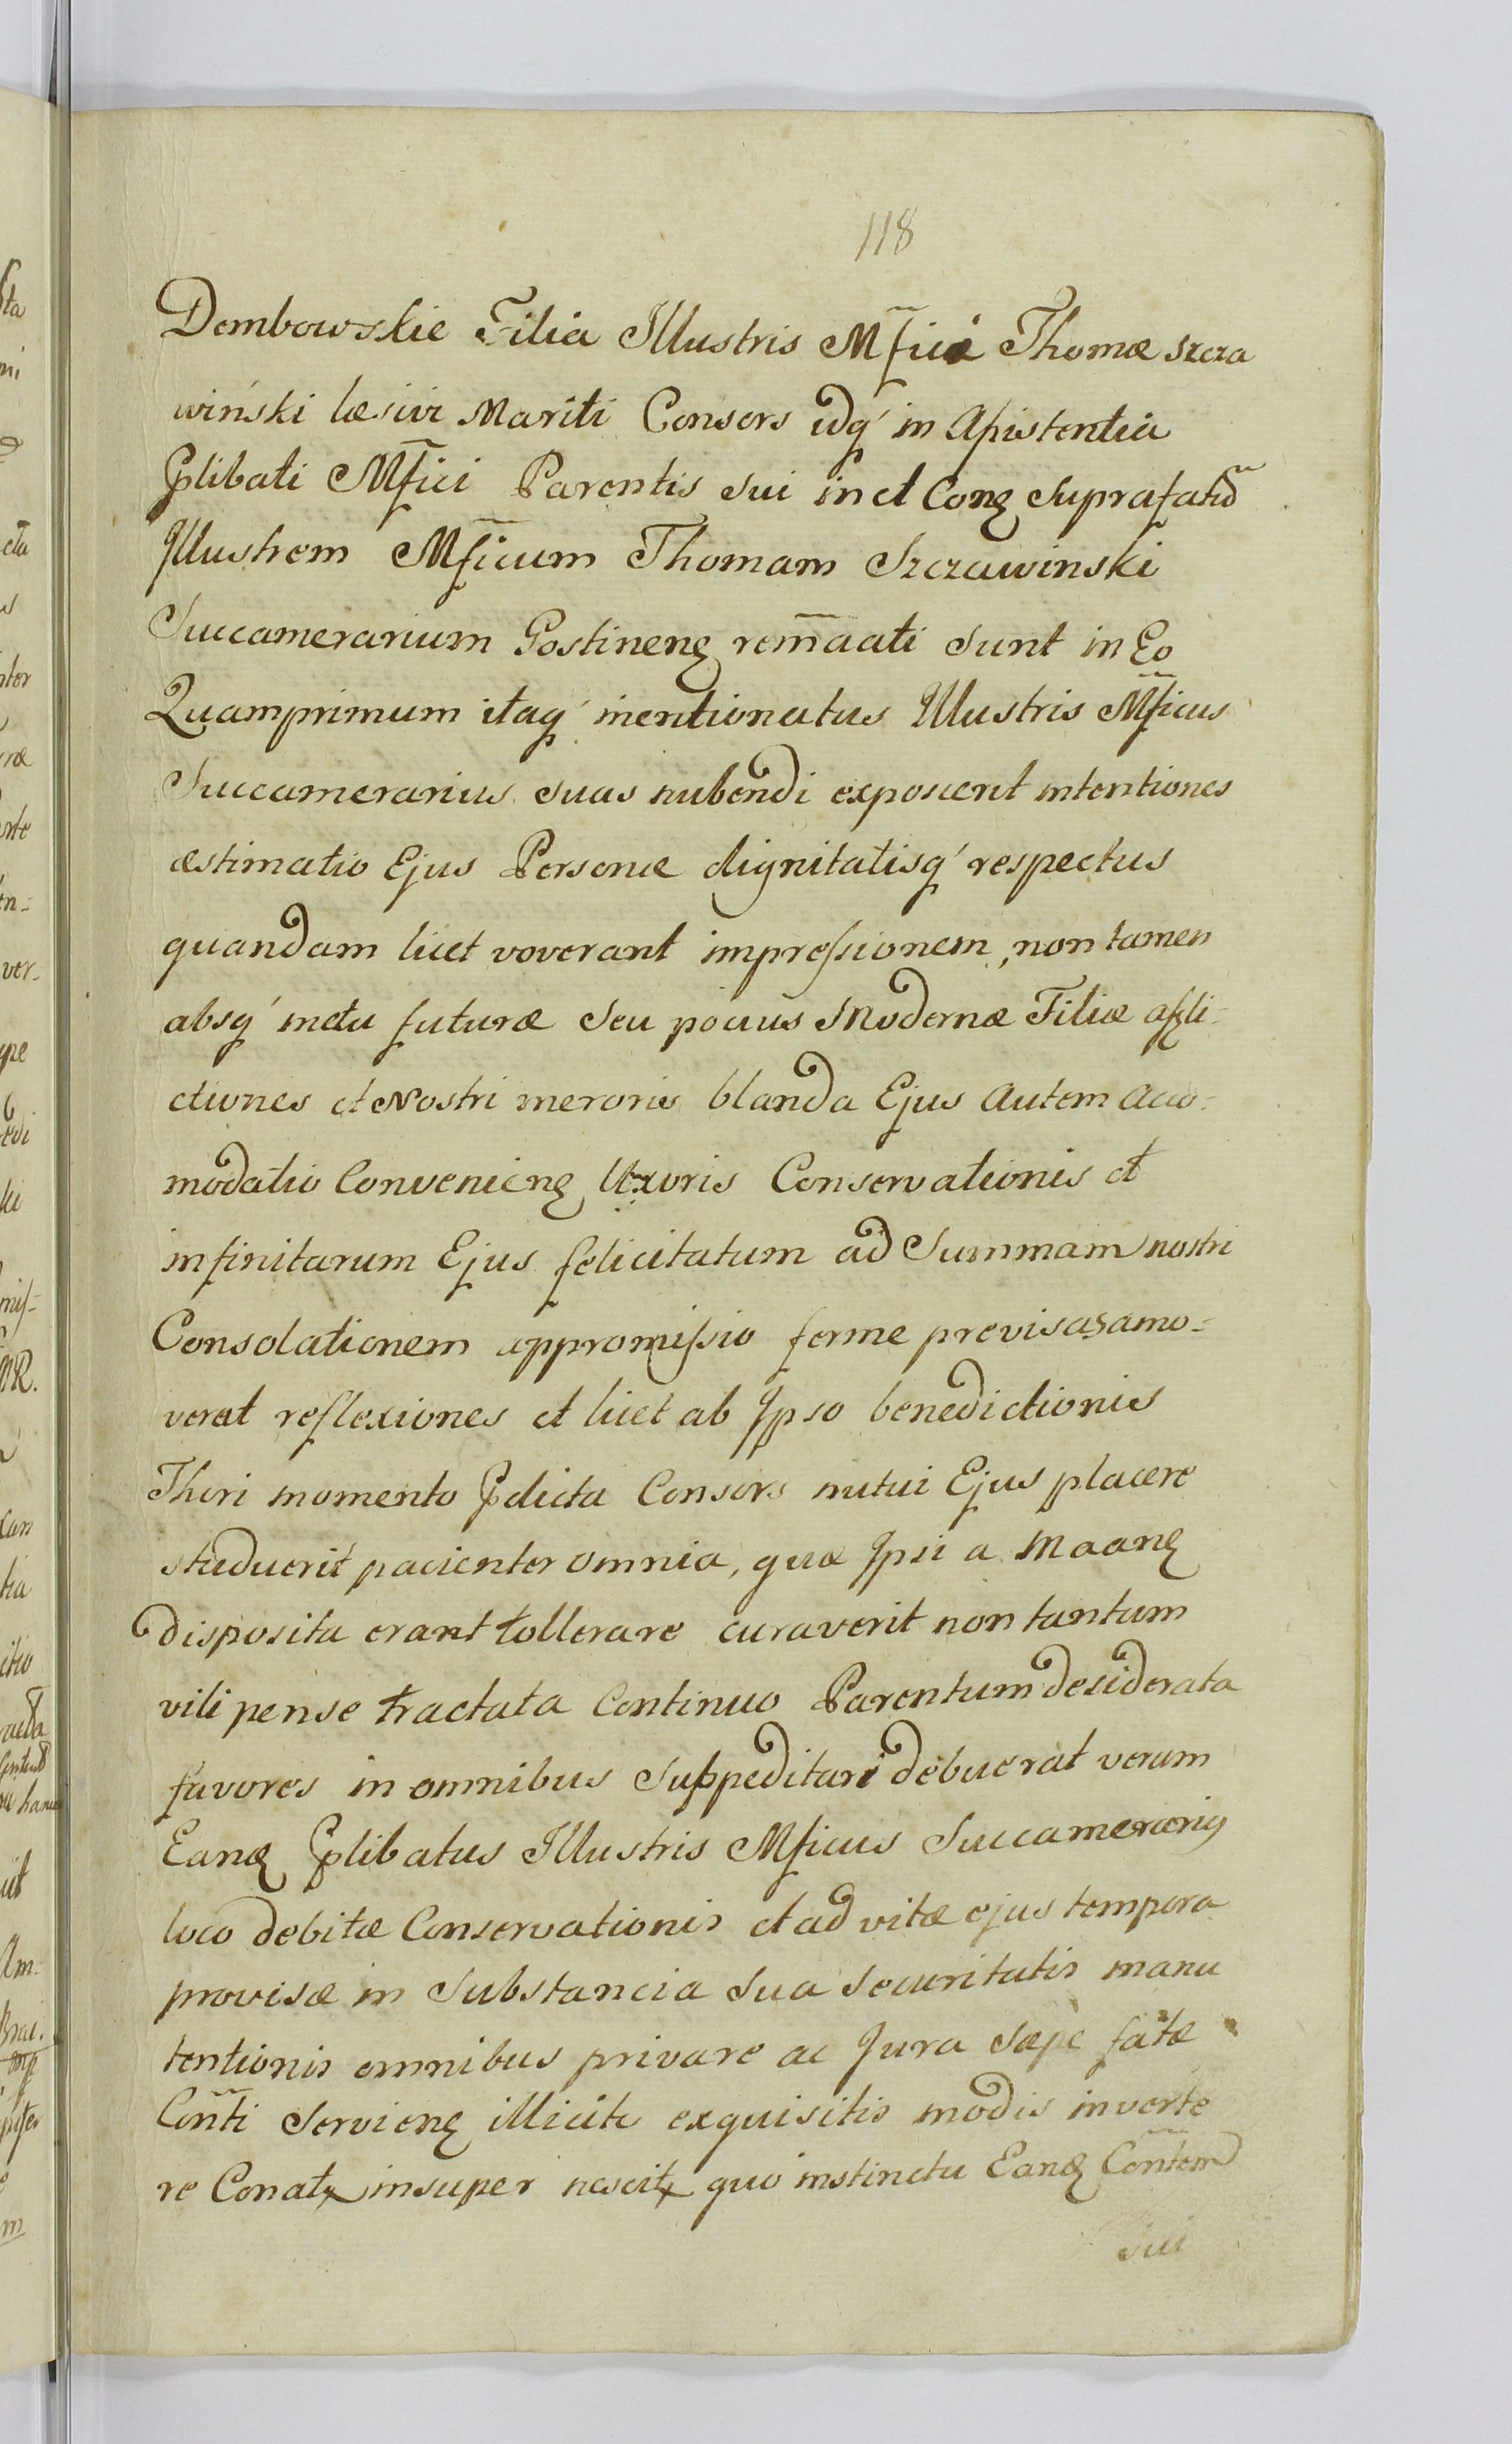 118
Dembowskie Filia Illustris Mf̃ici Thomæ Szcza
wiński læsivi Mariti Consors idq́ in Assistentia
Plibati Mf̃ici Parentis Sui in et Conȝ Suprafatũ
Illustrem Mf̃icum Thomam Szczawinski
Succamerarium Gostinenȝ rem̃aati Sunt in Eo
Quamprimum itaq́ mentionatus Illustris Mf̃icus
Succamerarius suas nubendi exposuerit intentiones
æstimatio Ejus Personæ dignitatisq́ respectus
quandam licet voverant impressionem, non tamen
absq́ metu futuræ seu pocius Modernæ Filiæ affli-
ctiones et Nostri meroris blanda Ejus Autem Acco-
modatio Convenienȝ Uxoris Conservationis et
infinitarum Ejus felicitatum ad Summam nostri
Consolationem appromissio ferme previsas amo-
verat reflexiones et licet ab Ipso benedictionis
Thori momento Pdicta Consors nutui Ejus placere
studuerit pacienter omnia, quæ Ipsi a Maanȝ
disposita erant tollerare curaverit non tantum
vili pense tractata Continuo Parentum desiderata
favores in omnibus Suppeditari debuerat verum
Eanȝ Plibatus Illustris Mficus Succamerarig
loco debitæ Conservationis et ad vitæ ejus tempora
provisæ in Substancia Sua Securitatis manu
tentionis omnibus privare ac Jura Sæpe fatæ
Cõnti Servienȝ illicite exquisitis modis inverte
re Conatx insuper nescitx quo instinctu Eanȝ Cõntem
sui